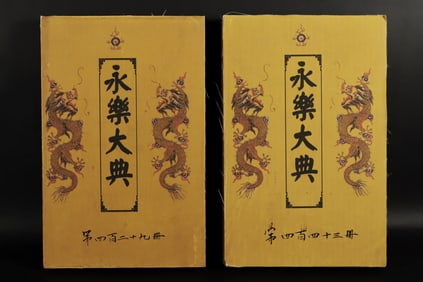 永樂大典
第四百二十九冊
永樂大典
第四百四十三冊